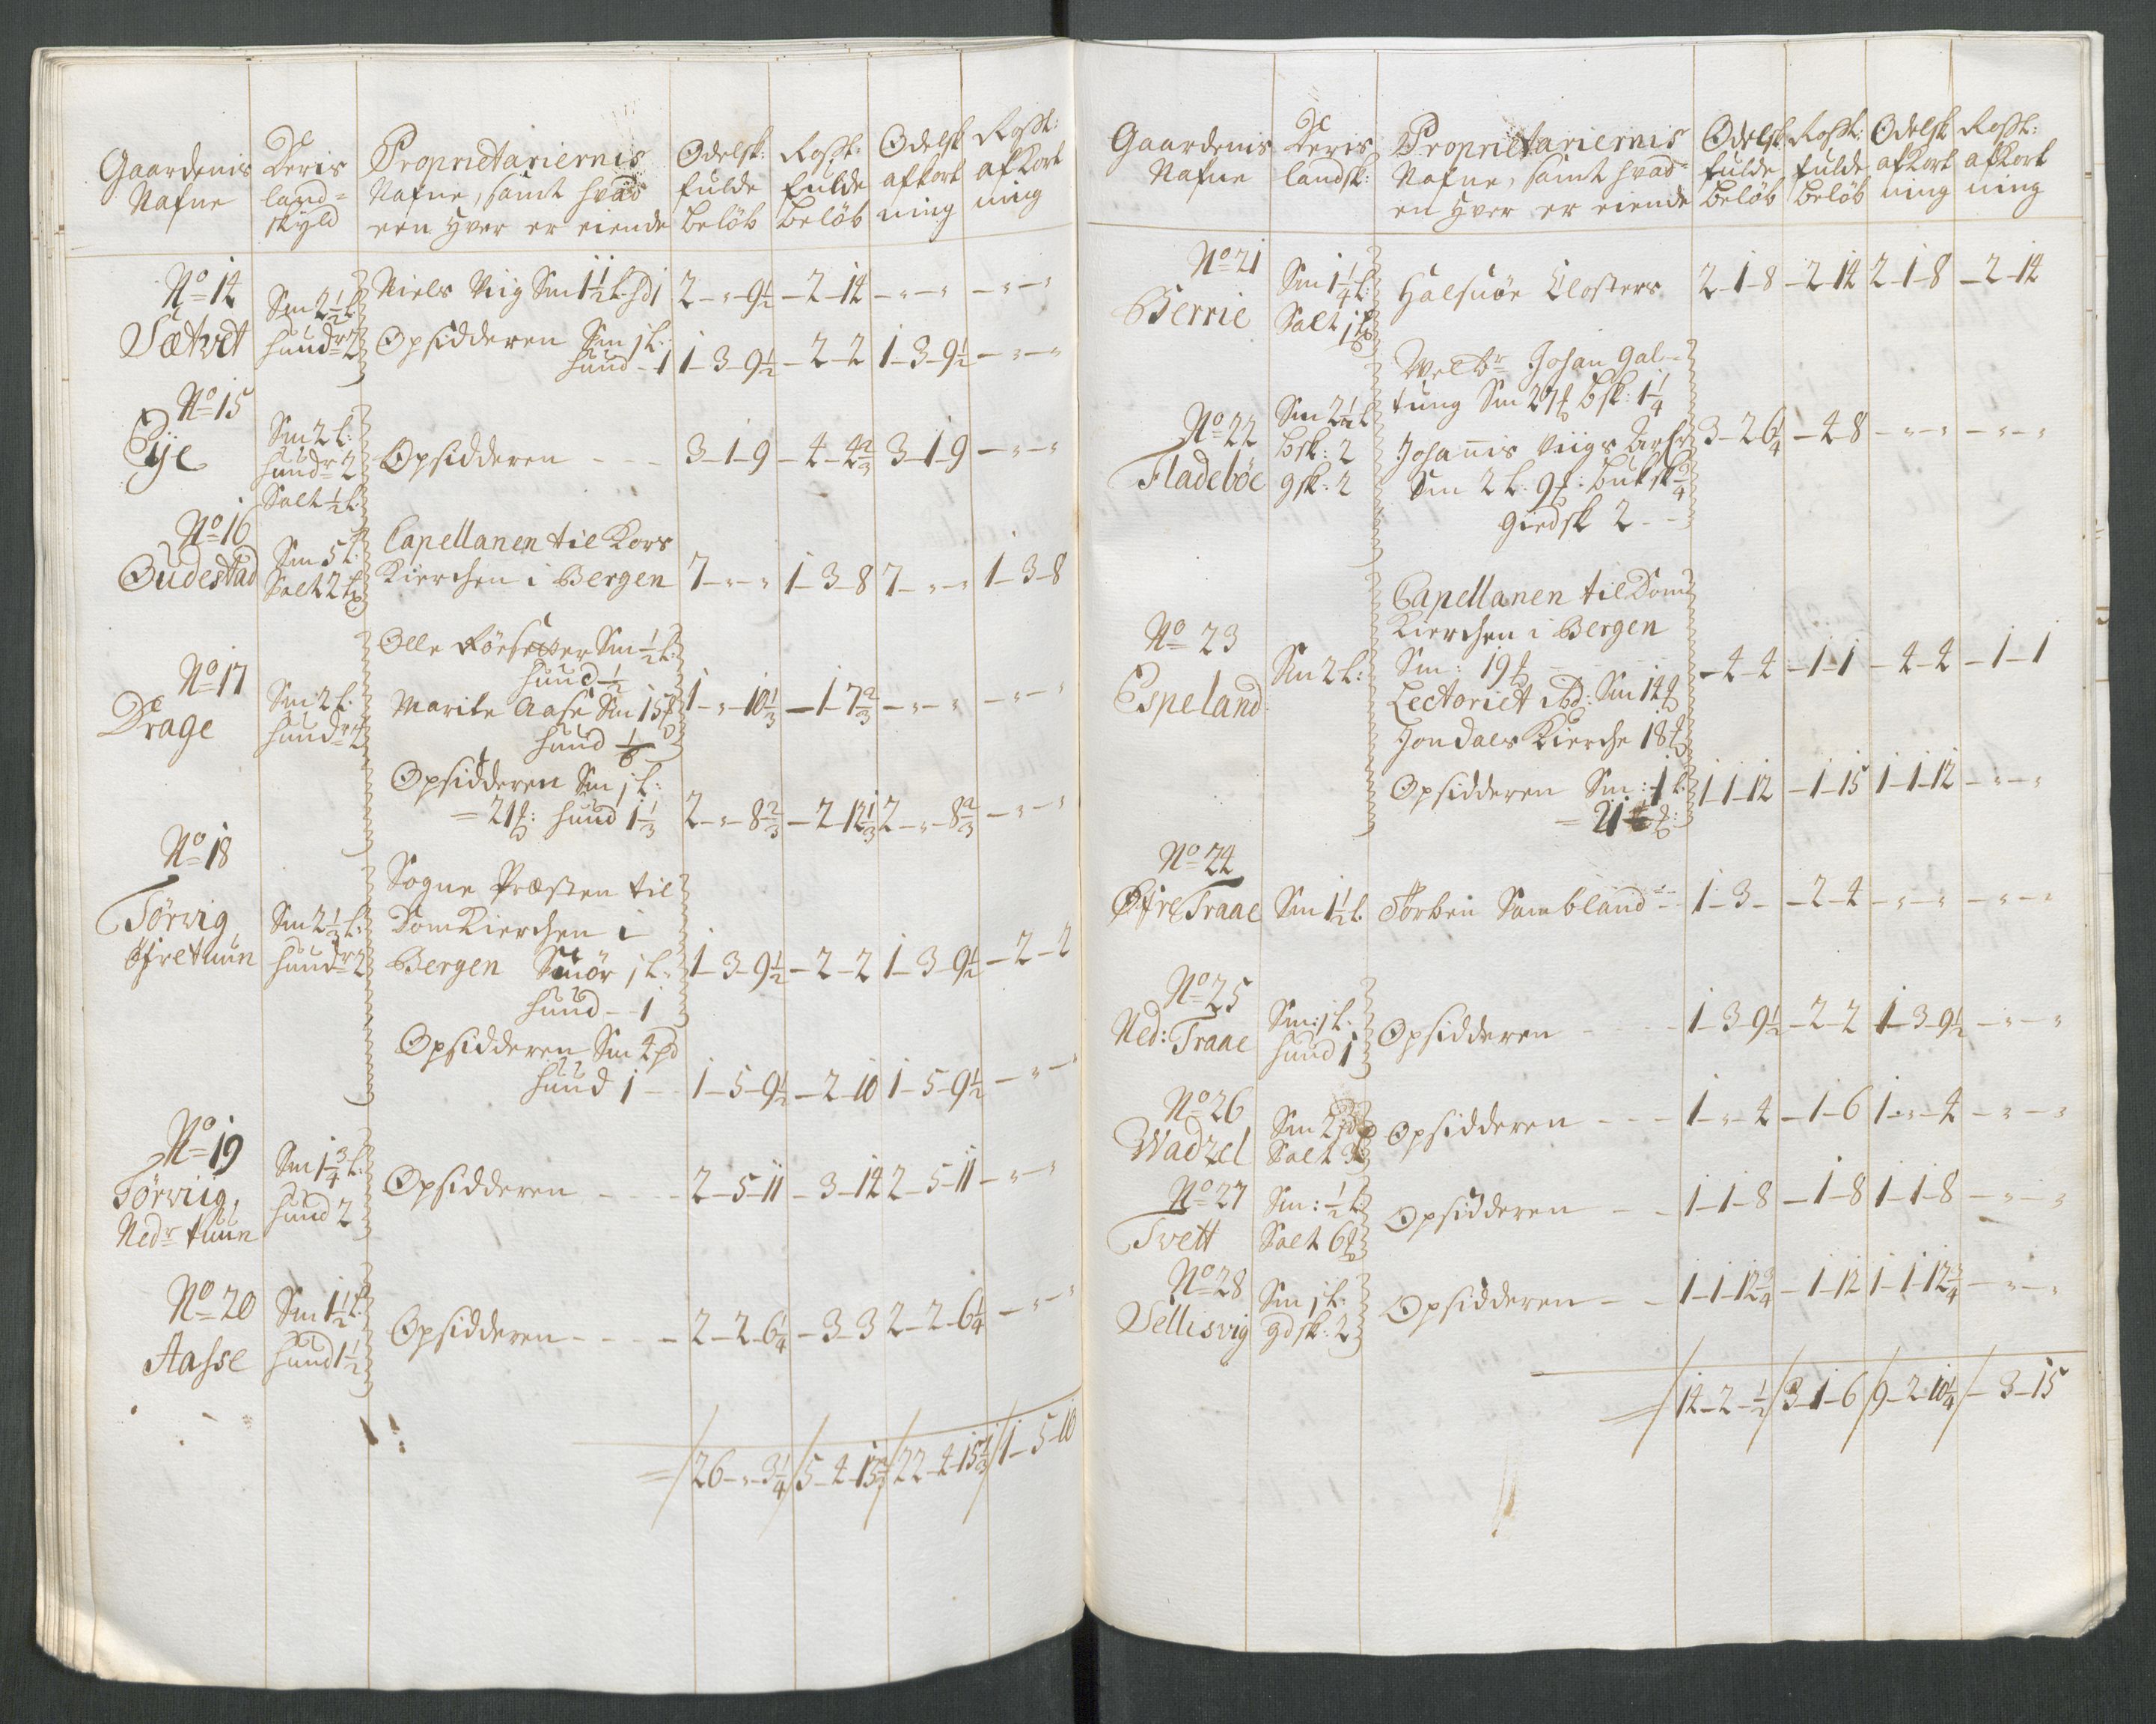 Gaardenis Nafne | Deris land= skyld | Proprietariernis Nafne, samt hvad een hver er eiende | Odelsk: fulde beløb | Rosst: fulde beløb | Odelsk afkort ning | Rosst: afkort ning
No 14 Sætvet | Sm 2 1/2 l: huudr 2 | Niels Viig Sm 1 1/2 l. hd 1 | 2 - " - 9 1/2 | - 2 - 14 | - " - " | - " - "
Opsidderen Sm 1 l: huud - 1 | 1 - 3 - 9 1/2 | - 2 - 2 | 1 - 3 - 9 1/2 | - " - "
No 15 Eje | Sm 2 l: huudr 2 Salt 1/2 l. | Opsidderen - - | 3 - 1 - 9 | - 4 - 4 2/3 | 3 - 1 - 9 | - " - "
No 16 Oudestad | Sm 5 l. Salt 2 | Capellanen til Kors Kierchen i Bergen | 7 - " - " | 1 - 3 - 8 | 7 - " - " | 1 - 3 - 8
No 17 Drage | Sm 2 l. huudr 2 | Olle Sm 1/2 l: huud 1/2
Marite Aase Sm 15 huud | 1 - " - 10 1/3 | - 1 - 7 2/3 | - " - " | - " - "
Opsidderen Sm 1 l:
= 21 : huud 1 1/3 | 2 - " - 8 2/3 | - 2 - 12 1/3 | 2 - " - 8 2/3 | - " - "
No 18 Törvig, öfretuun | Sm 2 1/3 l: huudr 2 | Sogne Præsten til
DomKierchen i
Bergen Smör 1 l: | 1 - 3 - 9 1/2 | - 2 - 2 | 1 - 3 - 9 1/2 | - 2 - 2
huud - 1
Opsidderen Sm 4 pd
huud 1 - | 1 - 5 - 9 1/2 | - 2 - 10 | 1 - 5 - 9 1/2 | - " - "
No 19 Törviig, Nedr tuun | Sm 1 3/4 l: huud 2 | Opsidderen - - | 2 - 5 - 11 | - 3 - 14 | 2 - 5 - 11 | - " - "
No 20 Aasse | Sm 1 1/2 l. huud 1 1/2 | Opsidderen - - - | 2 - 2 - 6 1/4 | - 3 - 3 | 2 - 2 - 6 1/4 | - " - "
= / 26 - " - 3 1/4 / 5 - 4 - 13 / 22 - 4 - 15 / 1 - 5 - 10
Gaardenis Nafne | Deris landsk: | Proprietariernis Nafne, samt hvad en hver er eiende | Odelsk: fulde beløb | Rosst: fulde beløb | Odelsk afkort ning | Rosst: afkort ning
No 21 Berrie | Sm 1 1/4 l: Salt 1 | Halsnöe Closters | 2 - 1 - 8 | - 2 - 14 | 2 - 1 - 8 | - 2 - 14
No 22 Fladeböe | Sm 2 1/2 l bsk: 2 gsk: 2 | Welbr Johan Gal-
tung Sm 27 bsk: 1 1/4
Johannis Viigs | 3 - 2 - 6 1/4 | - 4 - 8 | - " - " | - " - "
Sm 2 l. 9 : buksk 3/4
giedsk 2 -
No 23 Espeland | Sm 2 l: | Capellanen til Dom
Kierchen i Bergen
Sm: 19 | - 4 - 4 | - 1 - 1 | - 4 - 4 | - 1 - 1
Lectoriet ibd: Sm 14
Jondals Kierche 18
Opsidderen Sm: 1 l. | 1 - 1 - 12 | - 1 - 15 | 1 - 1 - 12 | - " - "
= 21
No 24 Öfre Traae | Sm 1 1/2 l. | Torben Sambland - | 1 - 3 - | - 2 - 4 | - " - " | - " - "
No 25 Ned: Traae | Sm: 1 l. huud 1 | Opsidderen - | 1 - 3 - 9 1/2 | - 2 - 2 | 1 - 3 - 9 1/2 | - " - "
No 26 Wadzel | Sm 2 pd Salt | Opsidderen - - | 1 - " - 4 | - 1 - 6 | 1 - " - 4 | - " - "
No 27 Tvett | Sm: 1/2 l Salt 6 | Opsidderen - - | 1 - 1 - 8 | - 1 - 8 | 1 - 1 - 8 | - " - "
No 28 Sellisvig | Sm 1 l: gdsk: 2 | Opsidderen - - | 1 - 1 - 12 3/4 | - 1 - 12 | 1 - 1 - 12 3/4 | - " - "
= / 14 - 2 - 1/2 / 3 - 1 - 6 / 9 - 2 - 10 1/4 / - 3 - 15